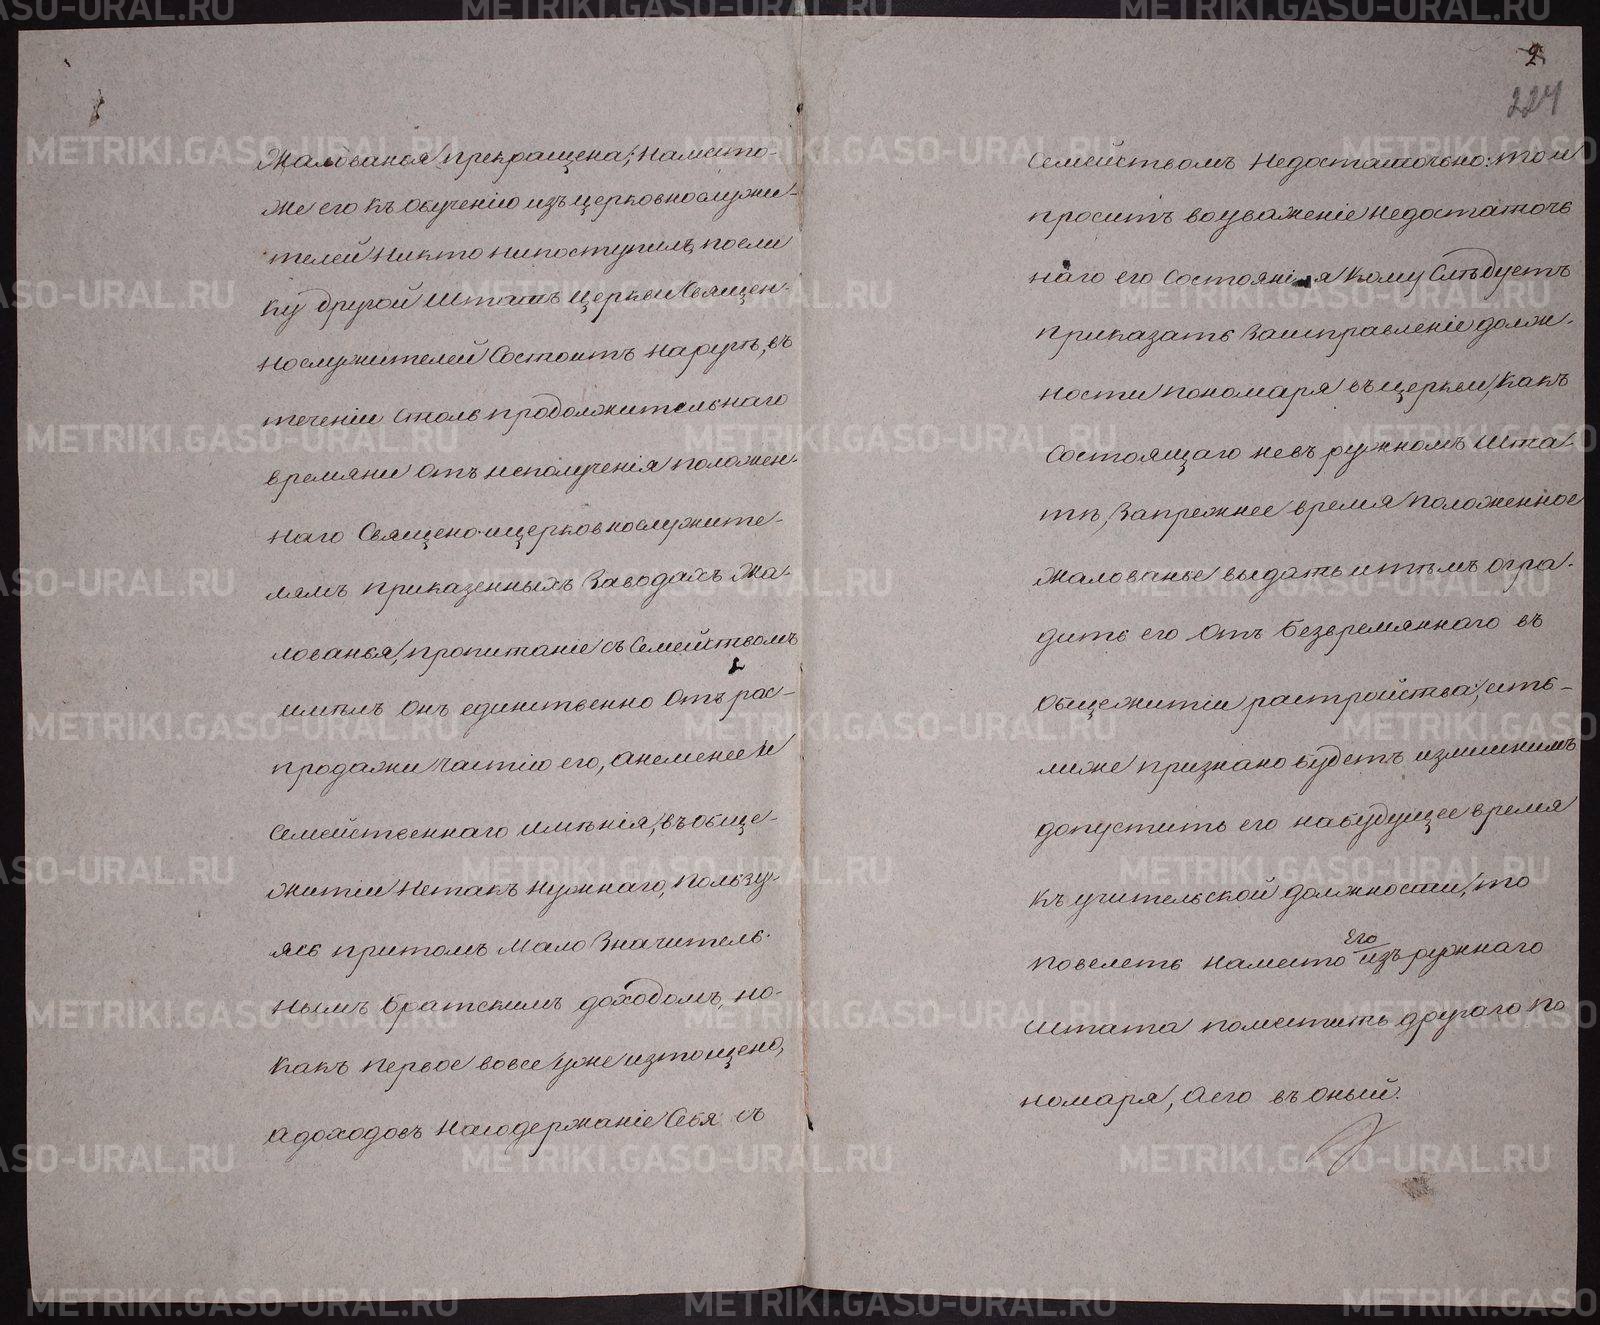 Жалованья прекращена, Наместо-
же его къ обученію изъ церковнослужи-
телей Никто нипоступилъ, посли
ку другой Штатъ церкви Священ-
нослужителей Состоитъ На ругѣ, въ
теченіи столь продолжительнаго
времяни отъ неполученія положен-
наго Священо-ицерковнослужите-
лямъ приказенныхъ Заводахъ Жа-
лованья, пропитаніе съ Семействомъ
имѣлъ Онъ единственно Отъ рас-
продажи частію его, Анеменее и
Семейственнаго имѣнія, въ обще-
житіи Нетакъ Нужнаго, Пользу-
ясь притомъ Мало Значитель-
нымъ братскимъ доходомъ, но-
Какъ первое вовсе уже изтощено,
Адоходовъ Насодержаніе Себя съ
2
224
Семействомъ Недостаточно: то и
проситъ воуваженіе Недостаточ
наго его Состоянія Кому Слѣдуетъ
приказать Заисправленіе долж-
ности пономаря въ церкви, Какъ
Состоящаго невъ ружномъ Шта-
тѣ, Запрежнее время положенное
Жалованье выдать итѣмъ огра-
дить его Отъ безвремяннаго въ
Общежитіи растройства, есть-
лиже признано будетъ излишнимъ
допустить его набудущее время
Къ учительской должности, то
повелеть Наместо Его изъ ружнаго
Штата поместить другаго По
номаря, Аего въ Оный.
METRIKI.GASO-URAL.RU